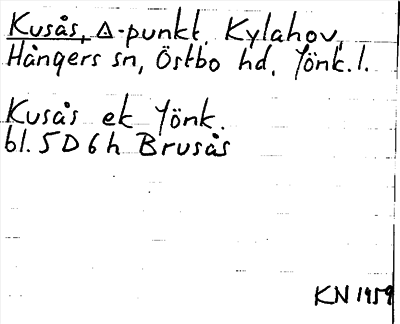 Kusås, △-punkt, Kylahov,
Hångers sn, Östbo hd, Jönk. l.
Kusås ek Jönk.
bl. 5 D 6 h Brusås
KN 1959